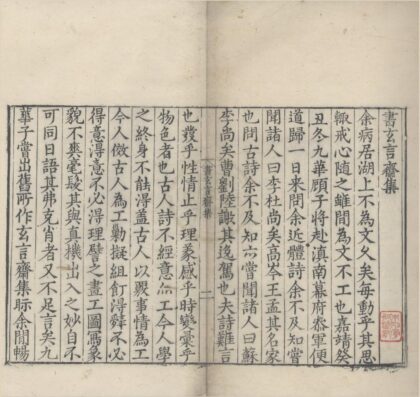 書玄言齋集
余病居湖上不為文久矣每動乎其思
輙戒心隨之雖間為文不工也嘉靖癸
丑冬九華顧子將赴滇南幕府叅軍便
道歸一日来問余近體詩余不及知嘗
聞諸人曰李杜尚矣高岑王孟其名家
也問古詩余不及知亦嘗聞諸人曰蘇
李尚矣曹劉陸謝其逸駕也夫詩難言
書玄言齋集
也發乎性情止乎理義感乎時變彙乎
物色者也古人詩不經意而工今人學
之終身不能得蓋古人以覈事情為工
今人倣古人為工勦擬組飣得不必
得意得意不必得理譬之畫工圖寫象
貌不爽毫髮其與真機出入之妙自不
可同日語其弗克肖者又不足言矣九
華子嘗出舊所作玄言齋集眎余閒暢